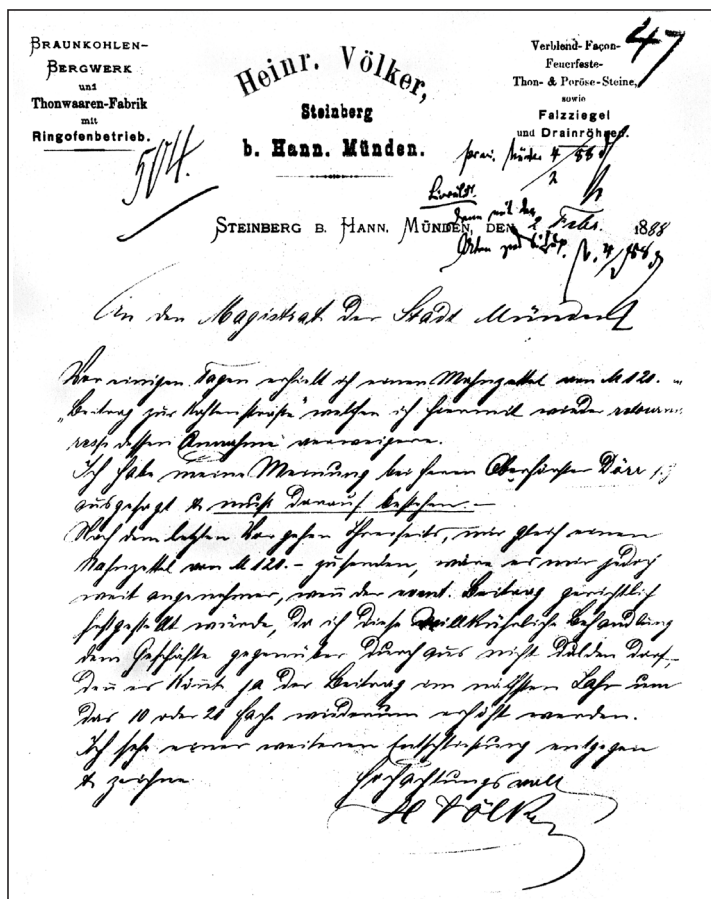 47
BRAUNKOHLEN-
BERGWERK
und
Thonwaaren-Fabrik
mit
Ringofenbetrieb.
504.
Heinr. Völker,
Steinberg
b. Hann. Münden.
Verblend-Façon-
Feuerfeste-
Thon- & Poröse-Steine,
sowie
Falzziegel
und Drainröhren.
STEINBERG B. HANN. MÜNDEN, DEN 2 Febr. 1888
An den Magistrat der Stadt Münden
Vor einigen Tagen erhielt ich einen Mahnzettel von M 120.-
"Beitrag zur Kohlenstraße" welchen ich hiermit wieder
dessen Annahme verweigere.
Ich habe meine Meinung bei Herrn Oberförster Dörr
ausgesagt & muß darauf bestehen.-
Nach dem letzten Vorgehen Ihrerseits, mir gleich einen
Mahnzettel von M 120.- zusenden, wäre es mir jedoch
weit angenehmer, wenn der event. Beitrag gerichtlich
festgestellt würde, da ich diese willkührliche Behandlung
dem Geschäfte gegenüber durchaus nicht dulden darf,
denn es könnt ja der Beitrag im nächsten Jahr um
das 10 oder 20 fache wiederum erhöht werden.
Ich sehe einer weiteren Entschließung entgegen
& zeichne
Hochachtungsvoll
H Völker